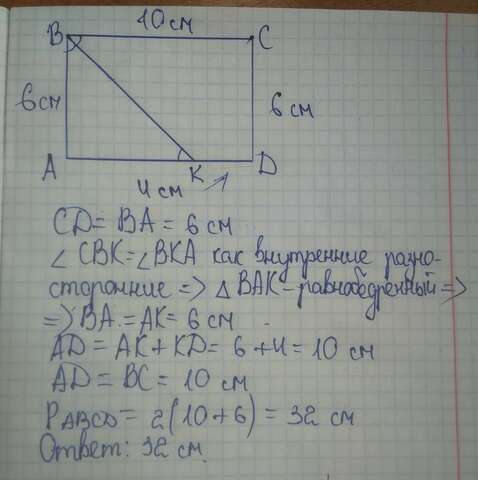 10 см
B C
6 см 6 см
A K D
4 см
CD = BA = 6 см
∠ CBK = ∠BKA как внутренние разно-
сторонние => △ BAK - равнобедренный =>
=> BA = AK = 6 см
AD = AK + KD = 6 + 4 = 10 см
AD = BC = 10 см
PABCD = 2(10+6) = 32 см
Ответ: 32 см.